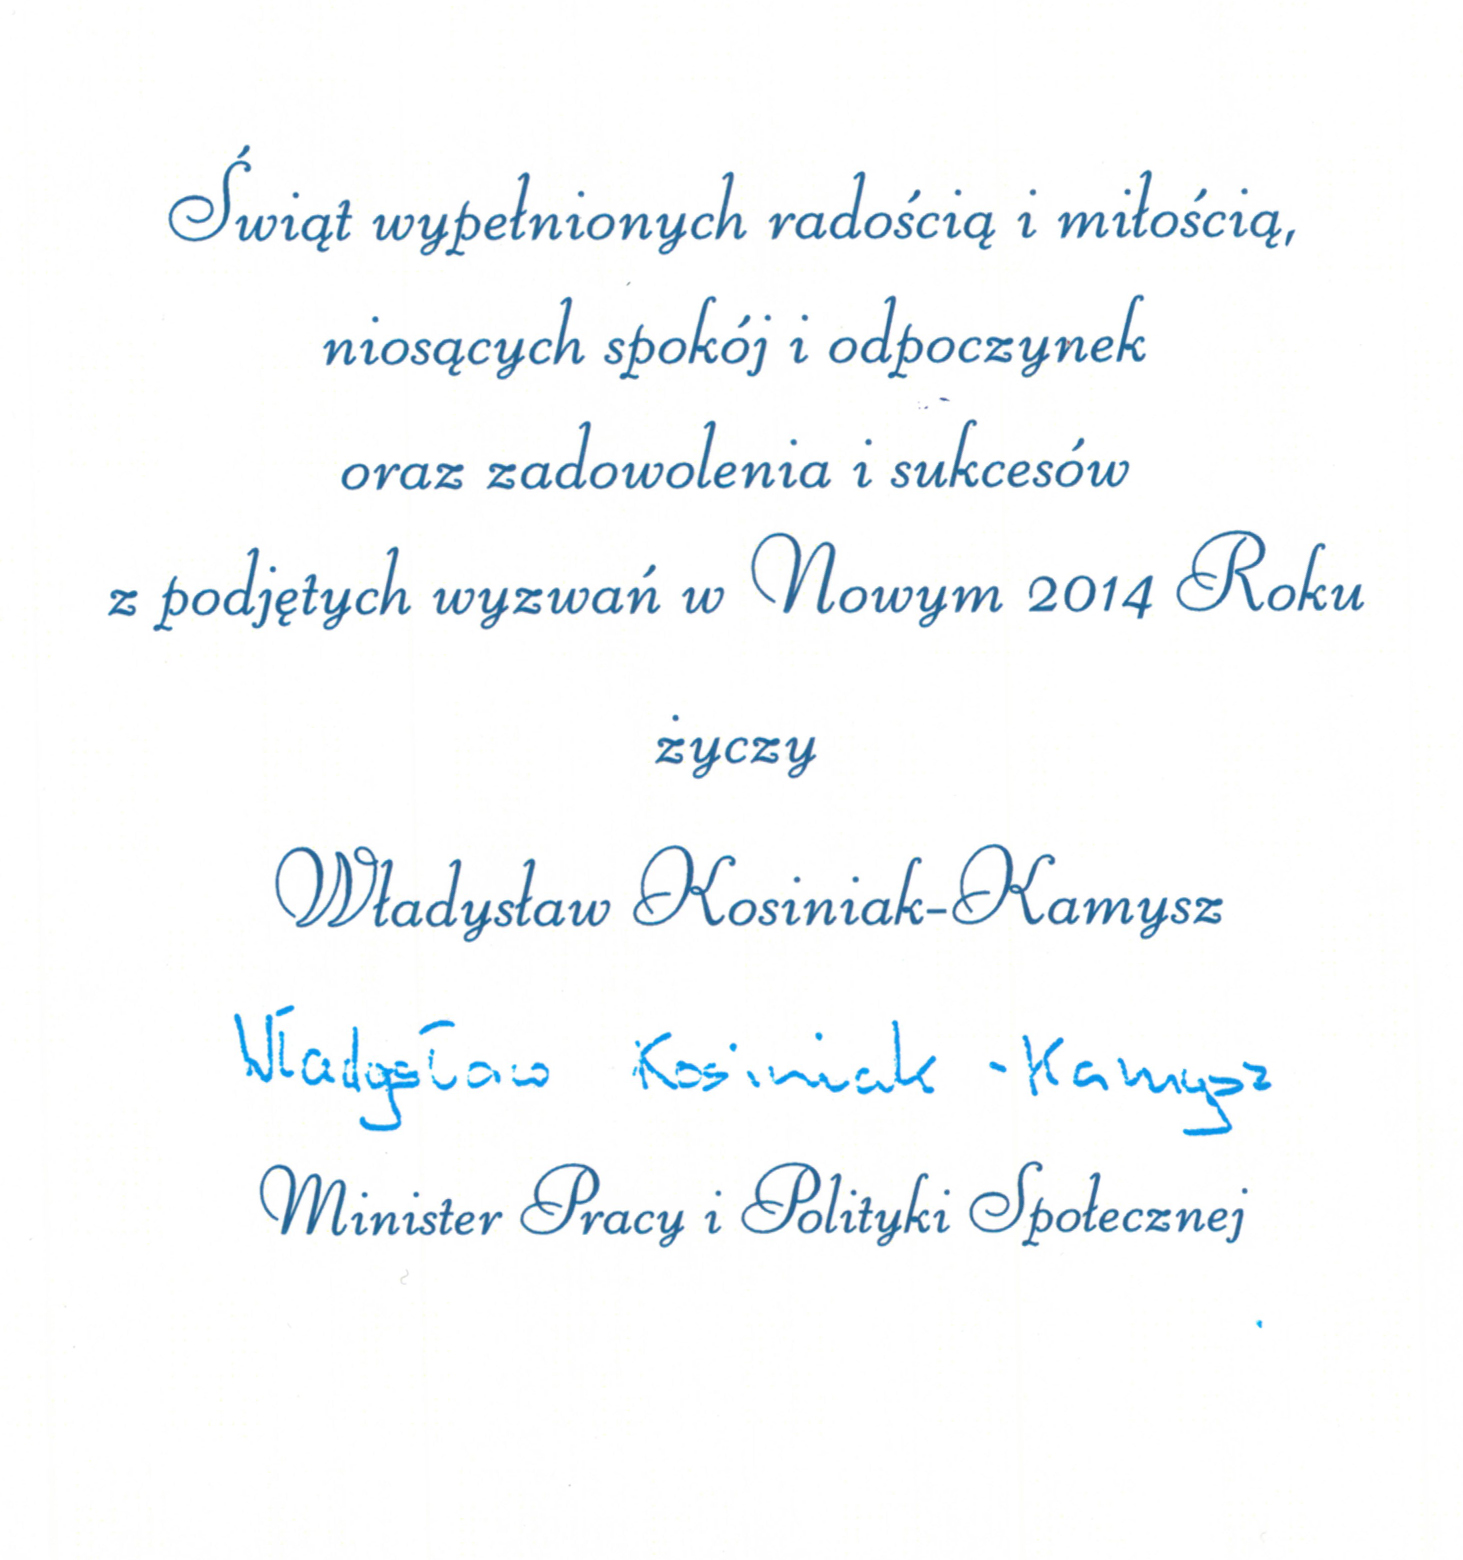 Świąt wypełnionych radością i miłością,
niosących spokój i odpoczynek
oraz zadowolenia i sukcesów
z podjętych wyzwań w Nowym 2014 Roku
życzy
Władysław Kosiniak-Kamysz
Władysław Kosiniak-Kamysz
Minister Pracy i Polityki Społecznej